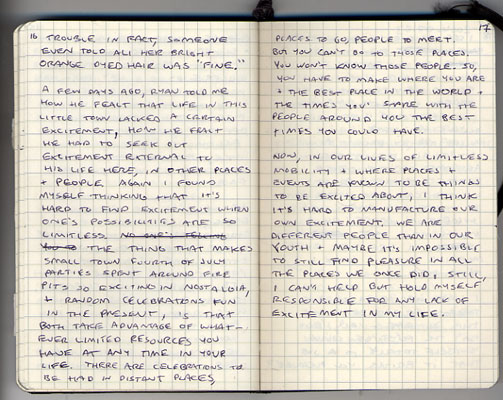 16
TROUBLE IN FACT, SOMEONE
EVEN TOLD ALI HER BRIGHT
ORANGE DYED HAIR WAS "FINE."
A FEW DAYS AGO, RYAN TOLD ME
HOW HE FEALT THAT LIFE IN THIS
LITTLE TOWN LACKED A CERTAIN
EXCITEMENT, HOW HE FEALT
HE HAD TO SEEK OUT
EXCITEMENT EXTERNAL TO
HIS LIFE HERE, IN OTHER PLACES
+ PEOPLE. AGAIN I FOUND
MYSELF THINKING THAT IT'S
HARD TO FIND EXCITEMENT WHEN
ONE'S POSSIBILITIES ARE SO
LIMITLESS. NO ONE'S
THE THING THAT MAKES
SMALL TOWN FOURTH OF JULY
PARTIES SPENT AROUND FIRE
PITS SO EXCITING IN NOSTALGIA,
+ RANDOM CELEBRATIONS FUN
IN THE PRESENT, IS THAT
BOTH TAKE ADVANTAGE OF WHAT-
EVER LIMITED RESOURCES YOU
HAVE AT ANY TIME IN YOUR
LIFE. THERE ARE CELEBRATIONS TO
BE HAD IN DISTANT PLACES,
17
PLACES TO GO, PEOPLE TO MEET.
BUT YOU CAN'T GO TO THOSE PLACES.
YOU WON'T KNOW THOSE PEOPLE. SO,
YOU HAVE TO MAKE WHERE YOU ARE
+ THE BEST PLACE IN THE WORLD +
THE TIMES YOU SHARE WITH THE
PEOPLE AROUND YOU THE BEST
TIMES YOU COULD HAVE.
NOW, IN OUR LIVES OF LIMITLESS
MOBILITY + WHERE PLACES +
EVENTS ARE KNOWN TO BE THINGS
TO BE EXCITED ABOUT, I THINK
IT'S HARD TO MANUFACTURE OUR
OWN EXCITEMENT. WE ARE
DIFFERENT PEOPLE THAN IN OUR
YOUTH + MAYBE IT'S IMPOSSIBLE
TO STILL FIND PLEASURE IN ALL
THE PLACES WE ONCE DID, STILL,
I CAN'T HELP BUT HOLD MYSELF
RESPONSIBLE FOR ANY LACK OF
EXCITEMENT IN MY LIFE.